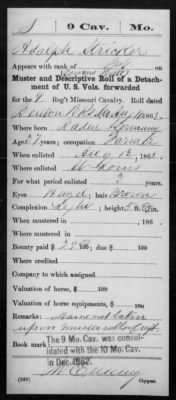 S | 9 Cav. | Mo.
Adolph Stricker
Appears with rank of
Muster and Descriptive Roll of a Detach-
ment of U. S. Vols. forwarded
for the 9 Reg't Missouri Cavalry. Roll dated
Benton Bks Mo 186
Where born Baden Germany
Age 27 years; occupation Farmer
When enlisted Aug 12, 1862.
Where enlisted St Louis
For what period enlisted 3 years.
Eyes Hazel; hair Brown
Complexion Light; height 5 ft. in.
When mustered in , 186 .
Where mustered in
Bounty paid $ 100; due $ 100
Where credited
Company to which assigned
Valuation of horse, $ 100
Valuation of horse equipments, $ 100
Remarks: Name not borne
upon muster roll of
Book mark:
The 9 Mo. Cav. was consol-
idated with the 10 Mo. Cav.
in Dec. 1862.
(339) Copyist.